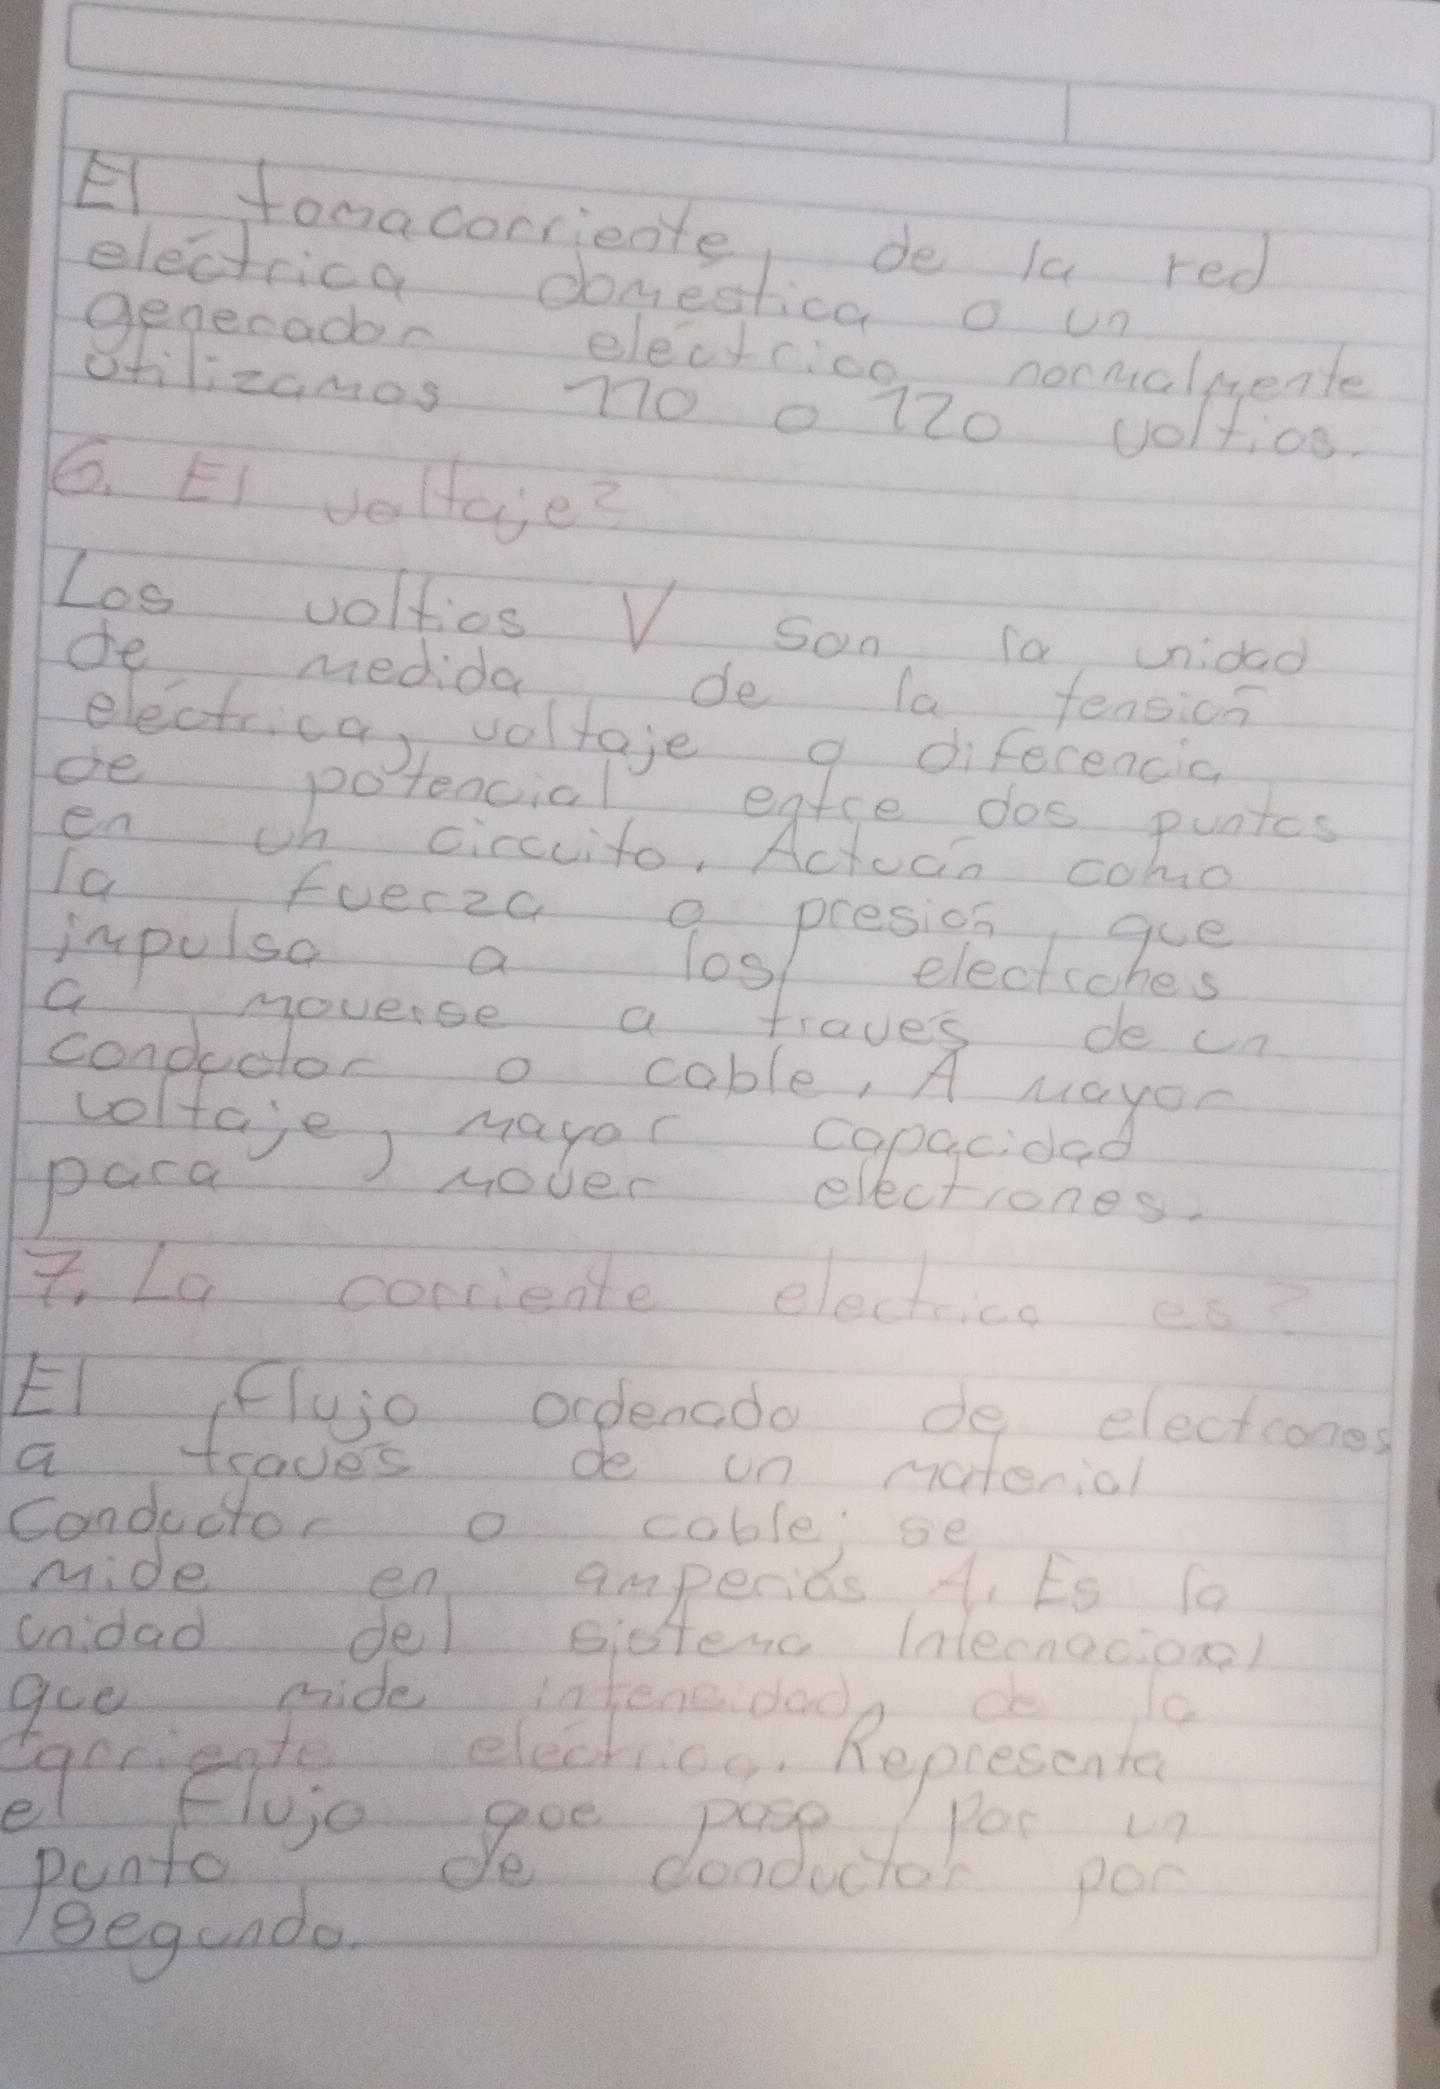 El tomacorriente, de la red
eléctrica doméstica o un
generador eléctrico normalmente
utilizamos 110 o 120 voltios.
6. El voltaje?
Los voltios V son la unidad
de medida de la tensión
eléctrica, voltaje o diferencia
de potencial entre dos puntos
en un circuito. Actúan como
la fuerza o presión que
impulsa a los electrones
a moverse a través de un
conductor o cable, A mayor
voltaje, mayor capacidad
para mover electrones.
7. La corriente electrica es?
El flujo ordenado de electrones
a través de un material
conductor o cable; se
mide en amperiós A. Es la
unidad del sistema Internacional
que mide intensidad de la
corriente eléctrica. Representa
el flujo que pasa por un
punto de conductor por
segundo.